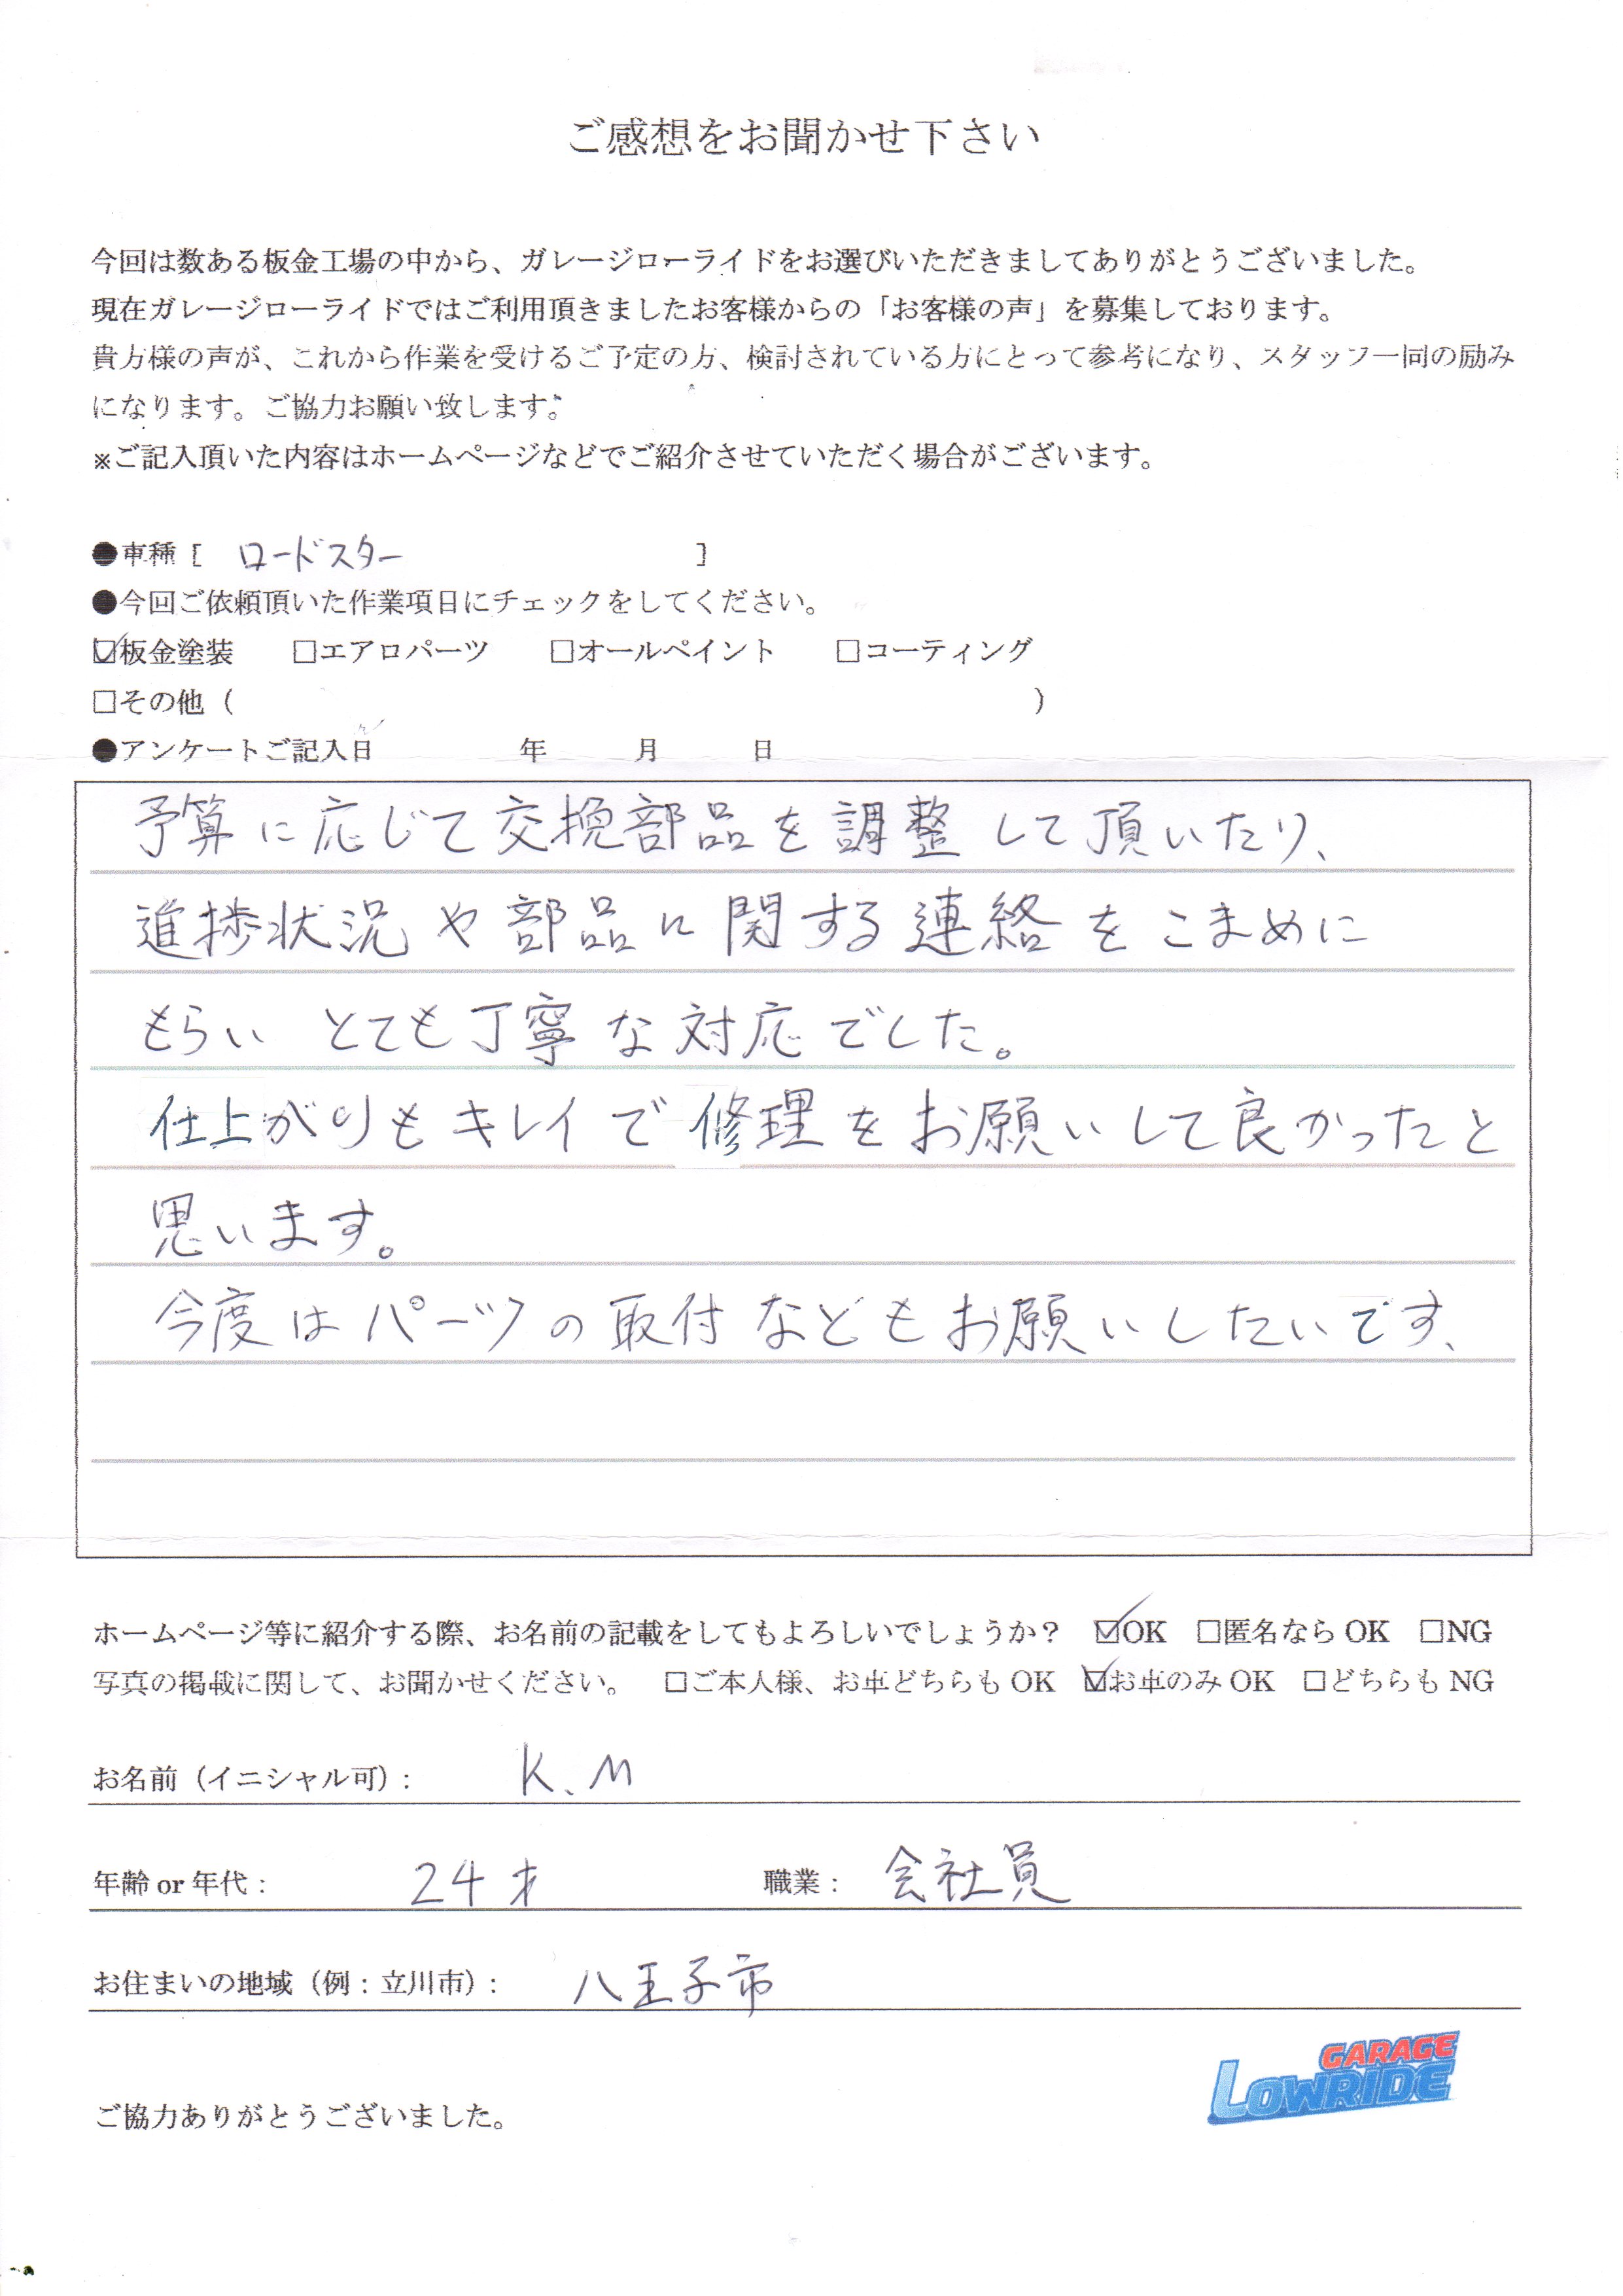 ご感想をお聞かせ下さい
今回は数ある板金工場の中から、ガレージローライドをお選びいただきましてありがとうございました。
現在ガレージローライドではご利用頂きましたお客様からの「お客様の声」を募集しております。
貴方様の声が、これから作業を受けるご予定の方、検討されている方にとって参考になり、スタッフ一同の励み
になります。ご協力お願い致します。
※ご記入頂いた内容はホームページなどでご紹介させていただく場合がございます。
●車種 [ ロードスター ]
●今回ご依頼頂いた作業項目にチェックをしてください。
☑板金塗装 □エアロパーツ □オールペイント □コーティング
□その他 ( )
●アンケートご記入日 年 月 日
予算に応じて交換部品を調整して頂いたり、
進捗状況や部品に関する連絡をこまめに
もらい とても丁寧な対応でした。
仕上がりもキレイで修理をお願いして良かったと
思います。
今度はパーツの取付などもお願いしたいです、
ホームページ等に紹介する際、お名前の記載をしてもよろしいでしょうか? ☑OK □匿名ならOK □NG
写真の掲載に関して、お聞かせください。 □ご本人様、お車どちらもOK ☑お車のみOK □どちらもNG
お名前（イニシャル可）: K.M
年齢or年代: 24才 職業: 会社員
お住まいの地域（例：立川市）: 八王子市
GARAGE
LOWRIDE
ご協力ありがとうございました。